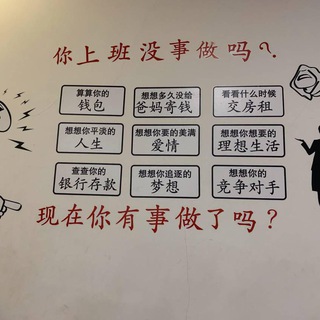 你上班没事做吗?.
算算你的
钱包
想想多久没给
爸妈寄钱
看看什么时候
交房租
想想你平淡的
人生
想想你要的美满
爱情
想想你想要的
理想生活
查查你的
银行存款
想想你追逐的
梦想
想想你的
竞争对手
现在你有事做了吗?